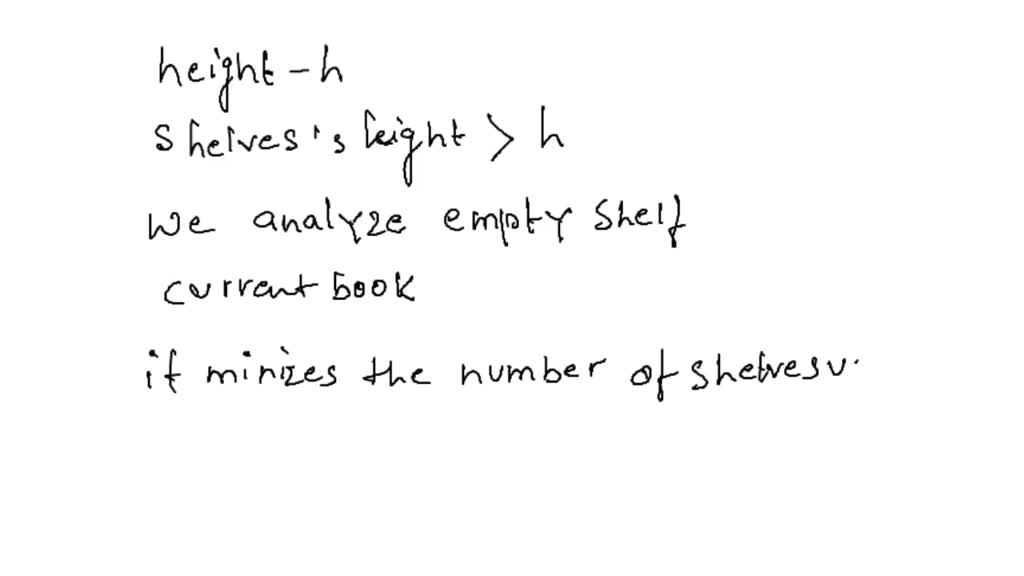 height - h
shelves's height > h
we analyze empty shelf
current book
it minizes the number of shelvesu.